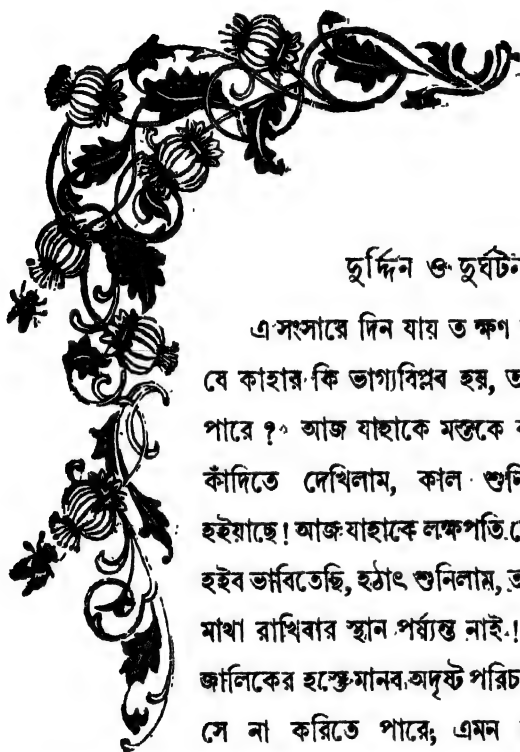 দুর্দ্দিন ও দুর্ঘটন
এ সংসারে দিন যায় ত ক্ষণ
যে কাহার কি ভাগ্যবিপ্লব হয়, ত
পারে ? আজ যাহাকে মস্তকে ক
কাঁদিতে দেখিলাম, কাল শুনি
হইয়াছে ! আজ যাহাকে লক্ষপতি দে
হইব ভাবিতেছি, হঠাৎ শুনিলাম, ত
মাথা রাখিবার স্থান পর্য্যন্ত নাই !
জালিকের হস্তে মানব অদৃষ্ট পরিচ
সে না করিতে পারে; এমন